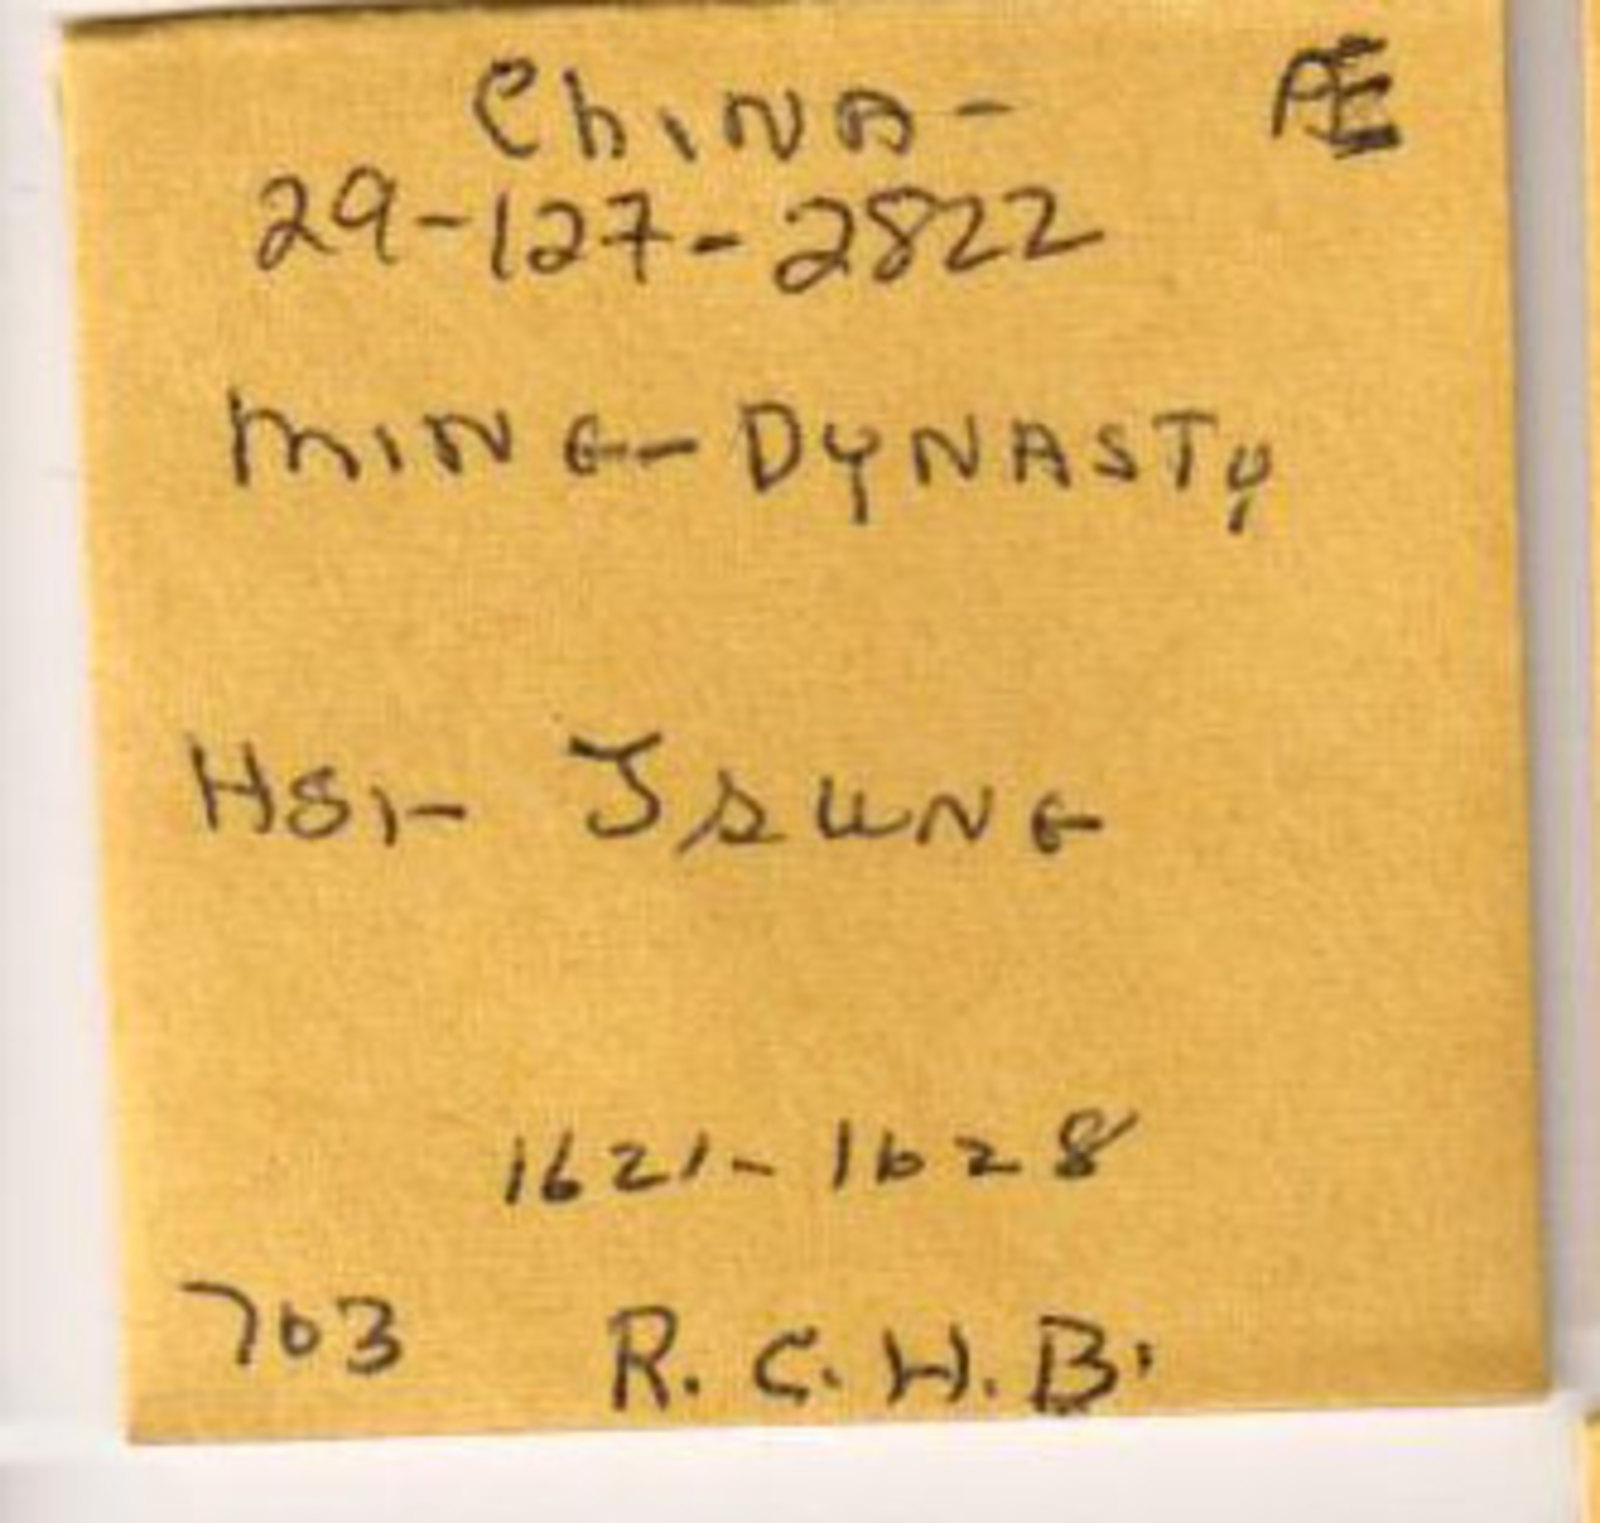 China- Æ
29-127-2822
MING-DYNASTY
Hsi- TSUNG
1621-1628
703 R.C.H.B.